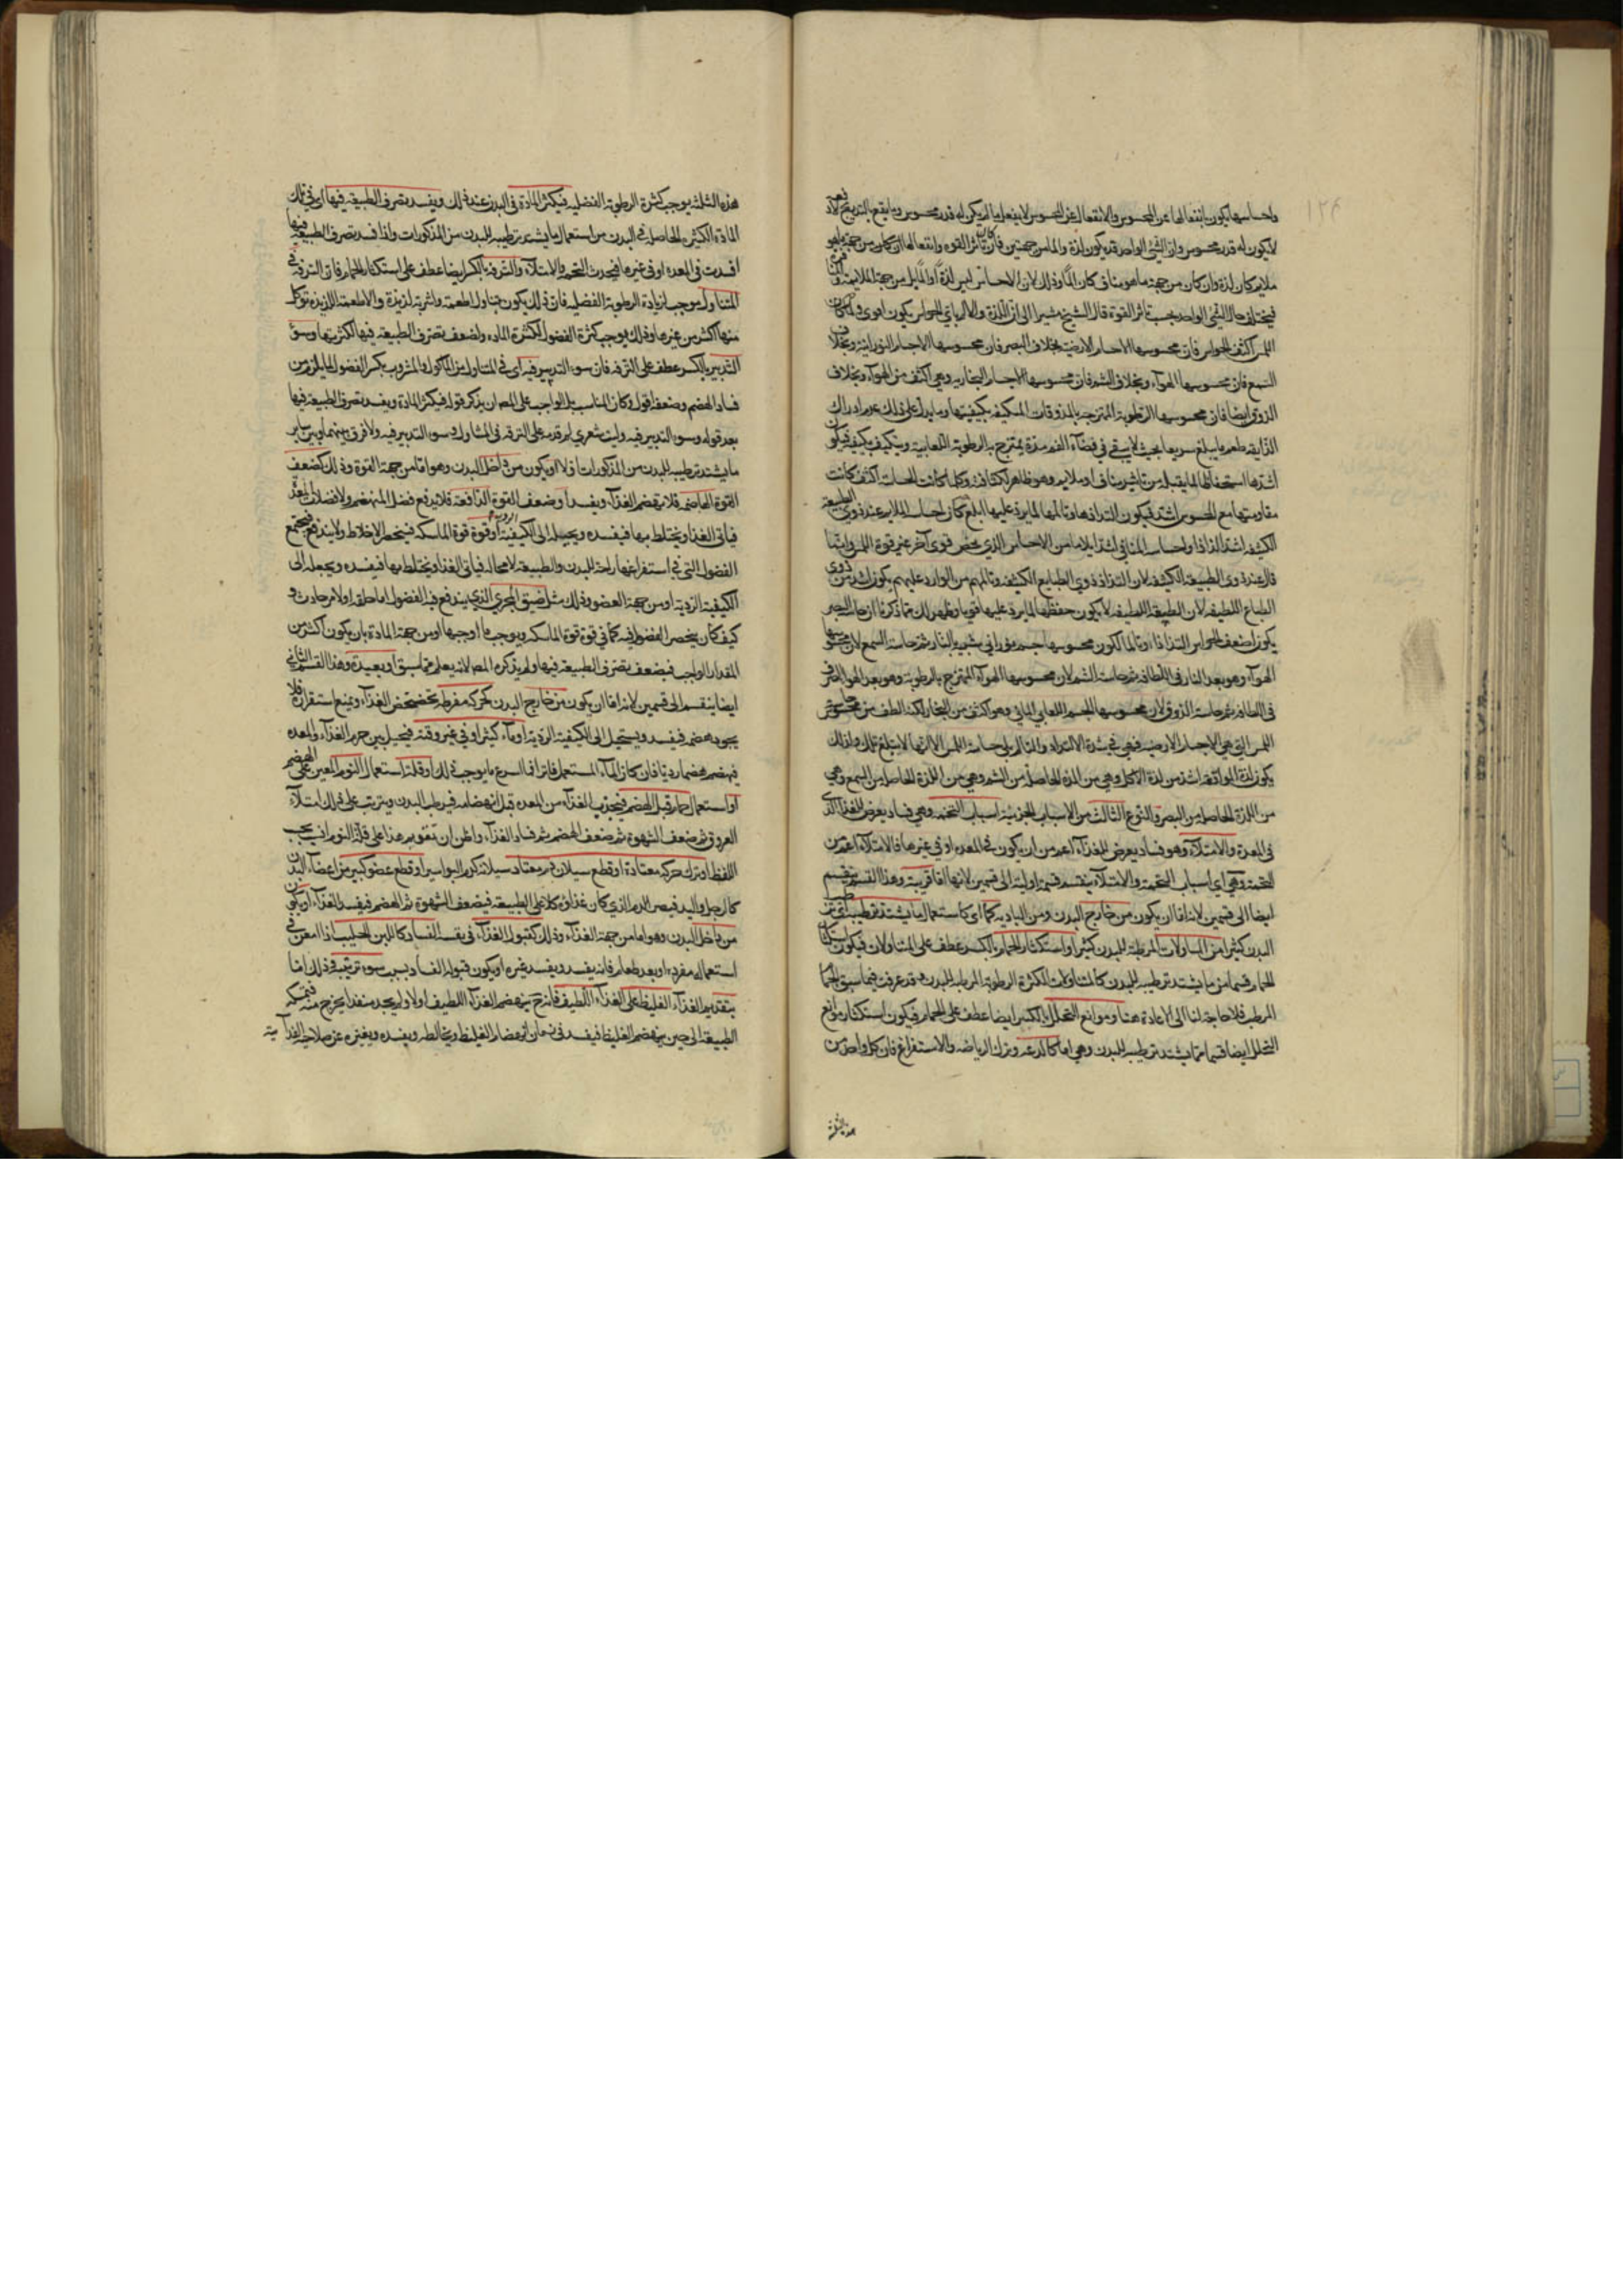 واحساسها يكون بانفعالها عن المحسوس والانفعال عن المحسوس لا ينفعل ما لم يكن له قدر محسوس وما يقع بالتدريج
لا يكون له قدر محسوس وان الشئ الواحد قد يكون لذة والما من جهتين فان تأثر القوة وانفعالها ان كان من جهة ما هو
ملايم كان لذة وان كان من جهة ما هو مناف كان الما وذلك لان الاحساس ليس لذة او الما بل من جهة الملايمة
فيختلف حال الشئ الواحد بحسب تأثر القوة قال الشيخ مشيرا الى ان اللذة والالم باي الحواس يكون اقوى ولما كان
اللمس اكثف الحواس فان محسوسها الاجسام الارضية بخلاف البصر فان محسوسها الاجسام النورانية وبخلاف
السمع فان محسوسها الهواء وبخلاف الشم فان محسوسها الاجسام البخارية وهي اكثف من الهواء وبخلاف
الذوق ايضا فان محسوسها الرطوبة الممتزجة بالمذوقات المتكيفة بكيفيتها وما يدل على ذلك عدم ادراك
الذايقة طعم ما يبلغ سريعا بحيث لا يبقى في فضاء الفم مدة يمتزج بالرطوبة اللعابية ويتكيف بكيفيته فيكون
اشدها استحفاظا لما يقبل من تأثير مناف او ملايم وهو ظاهر لكثافته وكلما كانت الحاسة اكثف كانت
مقاومتها مع المحسوس اشد فيكون التذاذها وتالمها لما يرد عليها ابلغ كان احساس الملايم عند ذوي الطبيعة
الكثيفة اشد الذاذا واحساس المنافي اشد ايلاما من الاحساس الذي يخص قوى اخر غير قوة اللمس وانما
قال عند ذوي الطبيعة الكثيفة لان التذاذ ذوي الطبايع الكثيفة وتالمهم من الوارد عليهم يكون اشد من ذوي
الطباع اللطيفة لان الطبيعة اللطيفة لا يكون حفظها لما يرد عليها قويا وظهر لك مما ذكرنا ان حاسة البصر
يكون اضعف الحواس التذاذا وتالما لكون محسوسها جسم نوراني شبيه بالنار ثم حاسة السمع لان محسوسها
الهواء وهو بعد النار في اللطافة ثم حاسة الشم لان محسوسها الهواء الممتزج بالرطوبة وهو بعد الهواء الصرف
في اللطافة ثم حاسة الذوق لان محسوسها الجسم اللعابي المائي وهو اكثف من البخار لكنه الطف من محسوس حاسة
اللمس التي هي الاجسام الارضية فهي في شدة الالتذاذ والتالم يلي حاسة اللمس الا انها لا تبلغ تلك ولذلك
يكون لذة المواقعة اشد من لذة الاكل وهي من اللذة الحاصلة من الشم وهي من اللذة الحاصلة من السمع وهي
من اللذة الحاصلة من البصر والنوع الثالث من الاسباب الجزئية اسباب التخمة وهي فساد يعرض للغذاء الذي
في المعدة والامتلاء وهو فساد يعرض للغذاء اعم من ان يكون في المعدة او في غيرها فالامتلاء اعم من
التخمة وهي اي اسباب التخمة والامتلاء ينقسم قسمة اولية الى قسمين لانها اما قريبة وهذا القسم ينقسم
ايضا الى قسمين لانه اما ان يكون من خارج البدن ومن البادية كما اي كاستعمال ما يشتد ترطيبه
البدن كثيرا من المتناولات المرطبة للبدن كثيرا واستكثار الحمام بالكسر عطف على المتناولات فيكون استكثار
الحمام قسما من ما يشتد ترطيبه للبدن كالمتناولات الكثيرة الرطوبة المرطبة للبدن قد عرفت فيما سبق الحمام
المرطب فلا حاجة لنا الى الاعادة هنا وموانع التحلل بالكسر ايضا عطف على الحمام فيكون استكثار موانع
التحلل ايضا قسما مما يشتد ترطيبه للبدن وهي اما كالدعة وترك الرياضة والاستفراغ فان كل واحد من
هذه الثلثة
هذه الثلثة يوجب كثرة الرطوبة الفضلية فيكثر المادة في البدن عند ذلك ويفسد تصرف الطبيعة فيها اي في تلك
المادة الكثيرة الحاصلة في البدن من استعمال ما يشتد ترطيبه للبدن من المذكورات واذا فسد تصرف الطبيعة فيها
افسدت في المعدة او في غيرها فيحدث التخمة والامتلاء والترفه بالكسر ايضا عطف على استكثار الحمام فان الترفه في
المتناول يوجب لزيادة الرطوبة الفضلية فان ذلك يكون بتناول اطعمة واشربة لذيذة والاطعمة اللذيذة توكل
منها اكثر من غيرها وذلك يوجب كثرة الفضول لكثرة المادة ولضعف تصرف الطبيعة فيها لكثرتها وسوء
التدبير بالكسر عطف على الترفه فان سوء التدبير فيه اي في المتناول من المأكول والمشروب يكثر الفضول لما يلزمه من
فساد الهضم وضعفه اقول وكان المناسب بل الواجب على المص ان يذكر قوله فيكثر المادة ويفسد تصرف الطبيعة فيها
بعد قوله وسوء التدبير فيه وليت شعري لم قدمه على الترفه في المتناول وسوء التدبير فيه ولا فرق بينهما وبين ساير
ما يشتد ترطيبه للبدن من المذكورات اولا او يكون من داخل البدن وهو اما من جهة القوة وذلك كضعف
القوة الهاضمة فلا ينهضم الغذاء ويفسد او ضعف القوة الدافعة فلا يدفع فضل المنهضم
فياتي الغذاء ويختلط بها فيفسده ويحيله الى الكيفية الردية او قوة قوة الماسكة فينحصر الاخلاط ولا يندفع فيجتمع
الفضول التي في استفراغها راحة للبدن والطبيعة لا محالة فياتي الغذاء ويختلط بها فيفسده ويجعله الى
الكيفية الردية او من جهة العضو وذلك مثل ضيق المجري الذي يندفع فيه الفضول اما خلقة او لامر حادث و
كيف كان ينحصر الفضول فيه كما في قوة قوة الماسكة ويوجب ما اوجبها او من جهة المادة بان يكون اكثر من
المقدار الواجب فيضعف تصرف الطبيعة فيها ولم يذكره المص لانه يعلم مما سبق او بعيدة وهذا القسم الثاني
ايضا ينقسم الى قسمين لانه اما ان يكون من خارج البدن كحركة مفرطة تخضخض الغذاء وتمنع استقراره فلا
يجود هضمه فيفسد ويستحيل الى الكيفية الردية او ماء كثير او في غير وقته فيحيل بين جرم الغذاء والمعدة
فينهضم هضما رديا فان كان الماء المستعمل فاترا في السرع ما يوجب ذلك او قلة استعمال النوم المعين على الهضم
او استعمال حمام قبل الهضم فيجذب الغذاء من المعدة قبل انهضامه فيرطب البدن ويترتب على ذلك امتلاء
العروق ثم ضعف الشهوة ثم ضعف الهضم ثم فساد الغذاء
اللفظ او ترك حركة معتادة او قطع سيلان دم معتاد سيلانه كدم البواسير او قطع عضو كبير من اعضاء البدن
كالرجل واليد فيصير الدم الذي كان غذاؤه كلا على الطبيعة فيضعف الشهوة ثم الهضم فيفسد الغذاء او يكون
من داخل البدن وهو اما من جهة الغذاء وذلك كقبول الغذاء في نفسه الفساد كاللبن الحليب اذا امعن في
استعماله مفردا وبعد طعام فانه يفسد ويفسد غيره او يكون قبوله الفساد بسبب سوء ترتيبه وذلك اما
بتقديم الغذاء الغليظ على الغذاء اللطيف فانه ح ينهضم الغذاء اللطيف اولا ولم يجد منفذا يخرج منه فتمسكه
الطبيعة الى حين ينهضم الغليظ فيفسد في زمان انهضام الغليظ ويخالطه ويفسده ويغيره عن صلاحية الغذائية